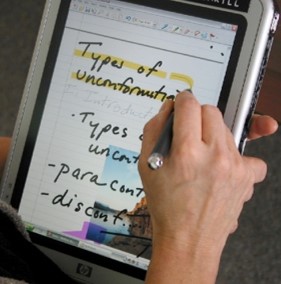 Types of
unconformatio
Introduct
• Types
uncon
- para cont
- disconf...
hp